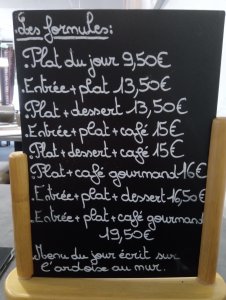 .Les formules:
.Plat du jour 9,50€
.Entrée+plat 13,50€
.Plat+dessert 13,50€
.Entrée+plat+café 15€
.Plat+dessert+café 15€
.Plat+café gourmand 16€
.Entrée+plat+dessert 16,50€
.Entrée+plat+café gourmand
19,50€
Menu du jour écrit sur
l'ardoise au mur.